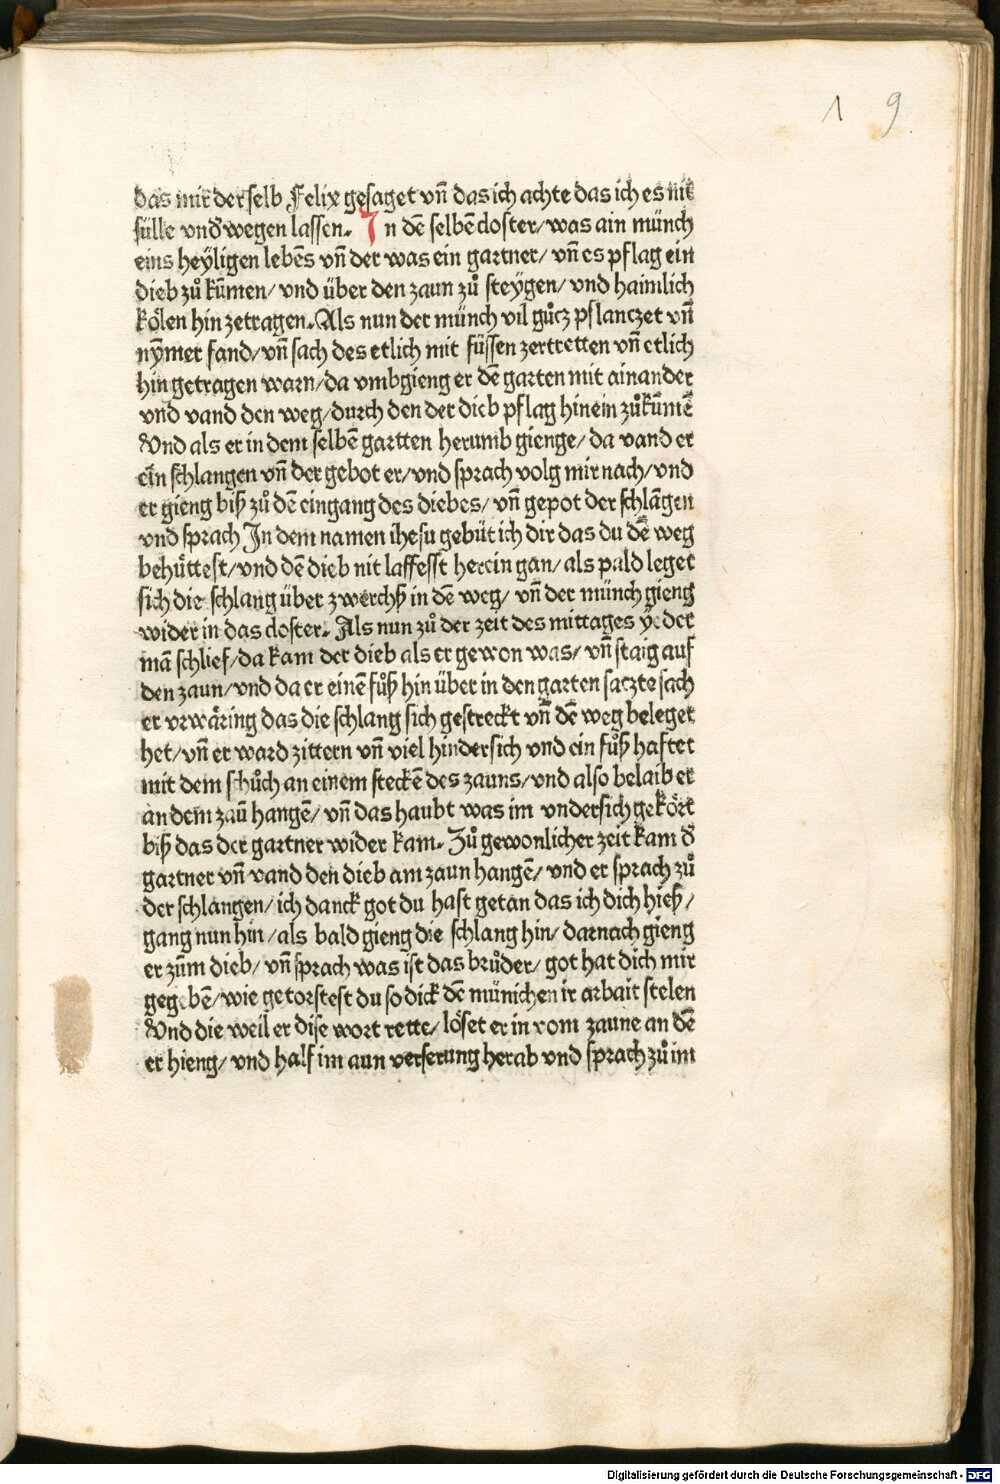 1 9
das mir der selb Felix gesaget vñ das ich achte das ich es nit
sülle vnd̕ wegen lassen. In dẽ selbẽ closter/ was ain münch
eins heyligen lebẽs vñ der was ein gartner/ vñ es pflag ein
dieb zů kũmen/ vnd über den zaun zů steygen/ vnd haimlich
kölen hin zetragen. Als nun der münch vil gůcz pflanczet vñ
nỹmer fand/ vñ sach des etlich mit füssen zertretten vñ etlich
hin getragen warn/ da vmbgieng er dẽ garten mit ainander
vnd vand den weg/ durch den der dieb pflag hinein zůkũmẽ
Vnd als er in dem selbẽ gartten herumb gienge/ da vand er
ein schlangen vñ der gebot er/ vnd sprach volg mir nach/ vnd
er gieng biß zů dẽ eingang des diebes/ vñ gepot der schlãgen
vnd sprach In dem namen ihesu gebüt ich dir das du dẽ weg
behüttest/ vnd dẽ dieb nit laffesst herein gan/ als pald leget
sich die schlang über zwerchß in dẽ weg/ vñ der münch gieng
wider in das closter. Als nun zů der zeit des mittages yeder
mã schlief/ da kam der dieb als er gewon was/ vñ staig auf
den zaun/ vnd da er einẽ fůß hin über in den garten saczte sach
er vrwäring das die schlang sich gestreckt vñ dẽ weg beleget
het/ vñ er ward zittern vñ viel hindersich vnd ein fůß haftet
mit dem schůch an einem steckẽ des zauns/ vnd also belaib er
an dem zaũ hangẽ/ vñ das haubt was im vndersich gekört
biß das der gartner wider kam. Zů gewonlicher zeit kam d̕
gartner vñ vand den dieb am zaun hangẽ/ vnd er sprach zů
der schlangen/ ich danck got du hast getan das ich dich hieß/
gang nun hin/ als bald gieng die schlang hin/ darnach gieng
er zům dieb/ vñ sprach was ist das brůder/ got hat dich mir
gegebẽ/ wie getorstest du so dick dẽ münichen ir arbait stelen
Vnd die weil er dise wort rette/ löset er in vom zaune an dẽ
er hieng/ vnd half im aun verserung herab vnd sprach zů im
Digitalisierung gefördert durch die Deutsche Forschungsgemeinschaft - DFG